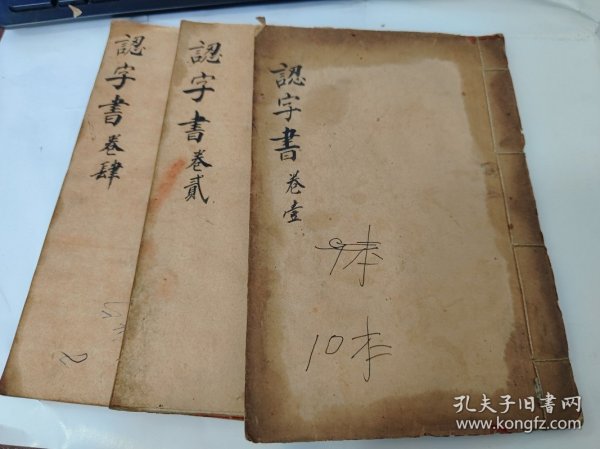 認字書 卷肆
認字書 卷貳
認字書 卷壹
9本
10本
2
孔夫子旧书网
www.kongfz.com